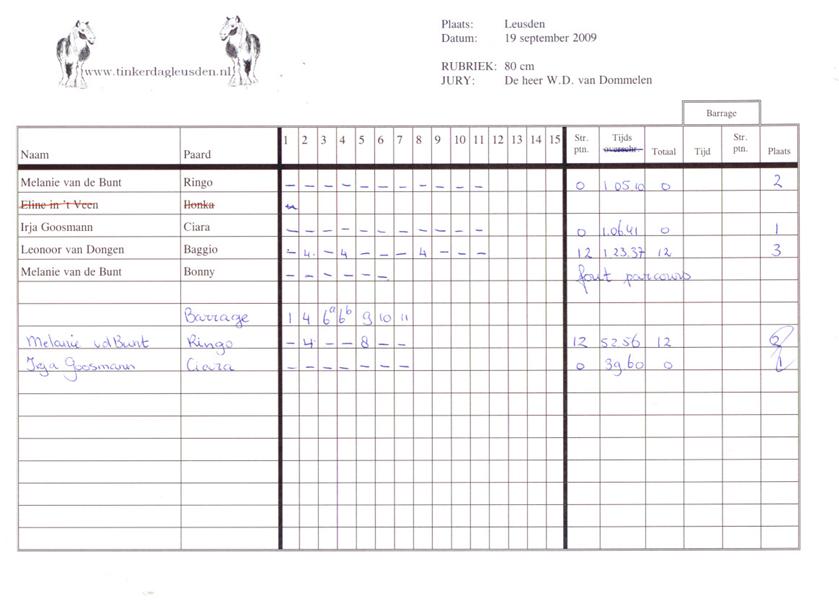 www.tinkerdagleusden.nl
Plaats: Leusden
Datum: 19 september 2009
RUBRIEK: 80 cm
JURY: De heer W.D. van Dommelen
Barrage
Naam Paard 1 2 3 4 5 6 7 8 9 10 11 12 13 14 15 Str. ptn. Tijds overschr. Totaal Tijd Str. ptn. Plaats
Melanie van de Bunt Ringo – – – – – – – – – – – 0 1 05.10 0 2
Eline in 't Veen Ilonka –
Irja Goosmann Ciara – – – – – – – – – – – 0 1.06.41 0 1
Leonoor van Dongen Baggio – 4. – 4 – – – 4 – – – 12 1 23.37 12 3
Melanie van de Bunt Bonny – – – – – – fout parcours
Barrage 1 4 6a 6b 9 10 11
Melanie vd Bunt Ringo – 4 – – 8 – – 12 52.56 12 2
Irja Goosmann Ciara – – – – – – – 0 39.60 0 1